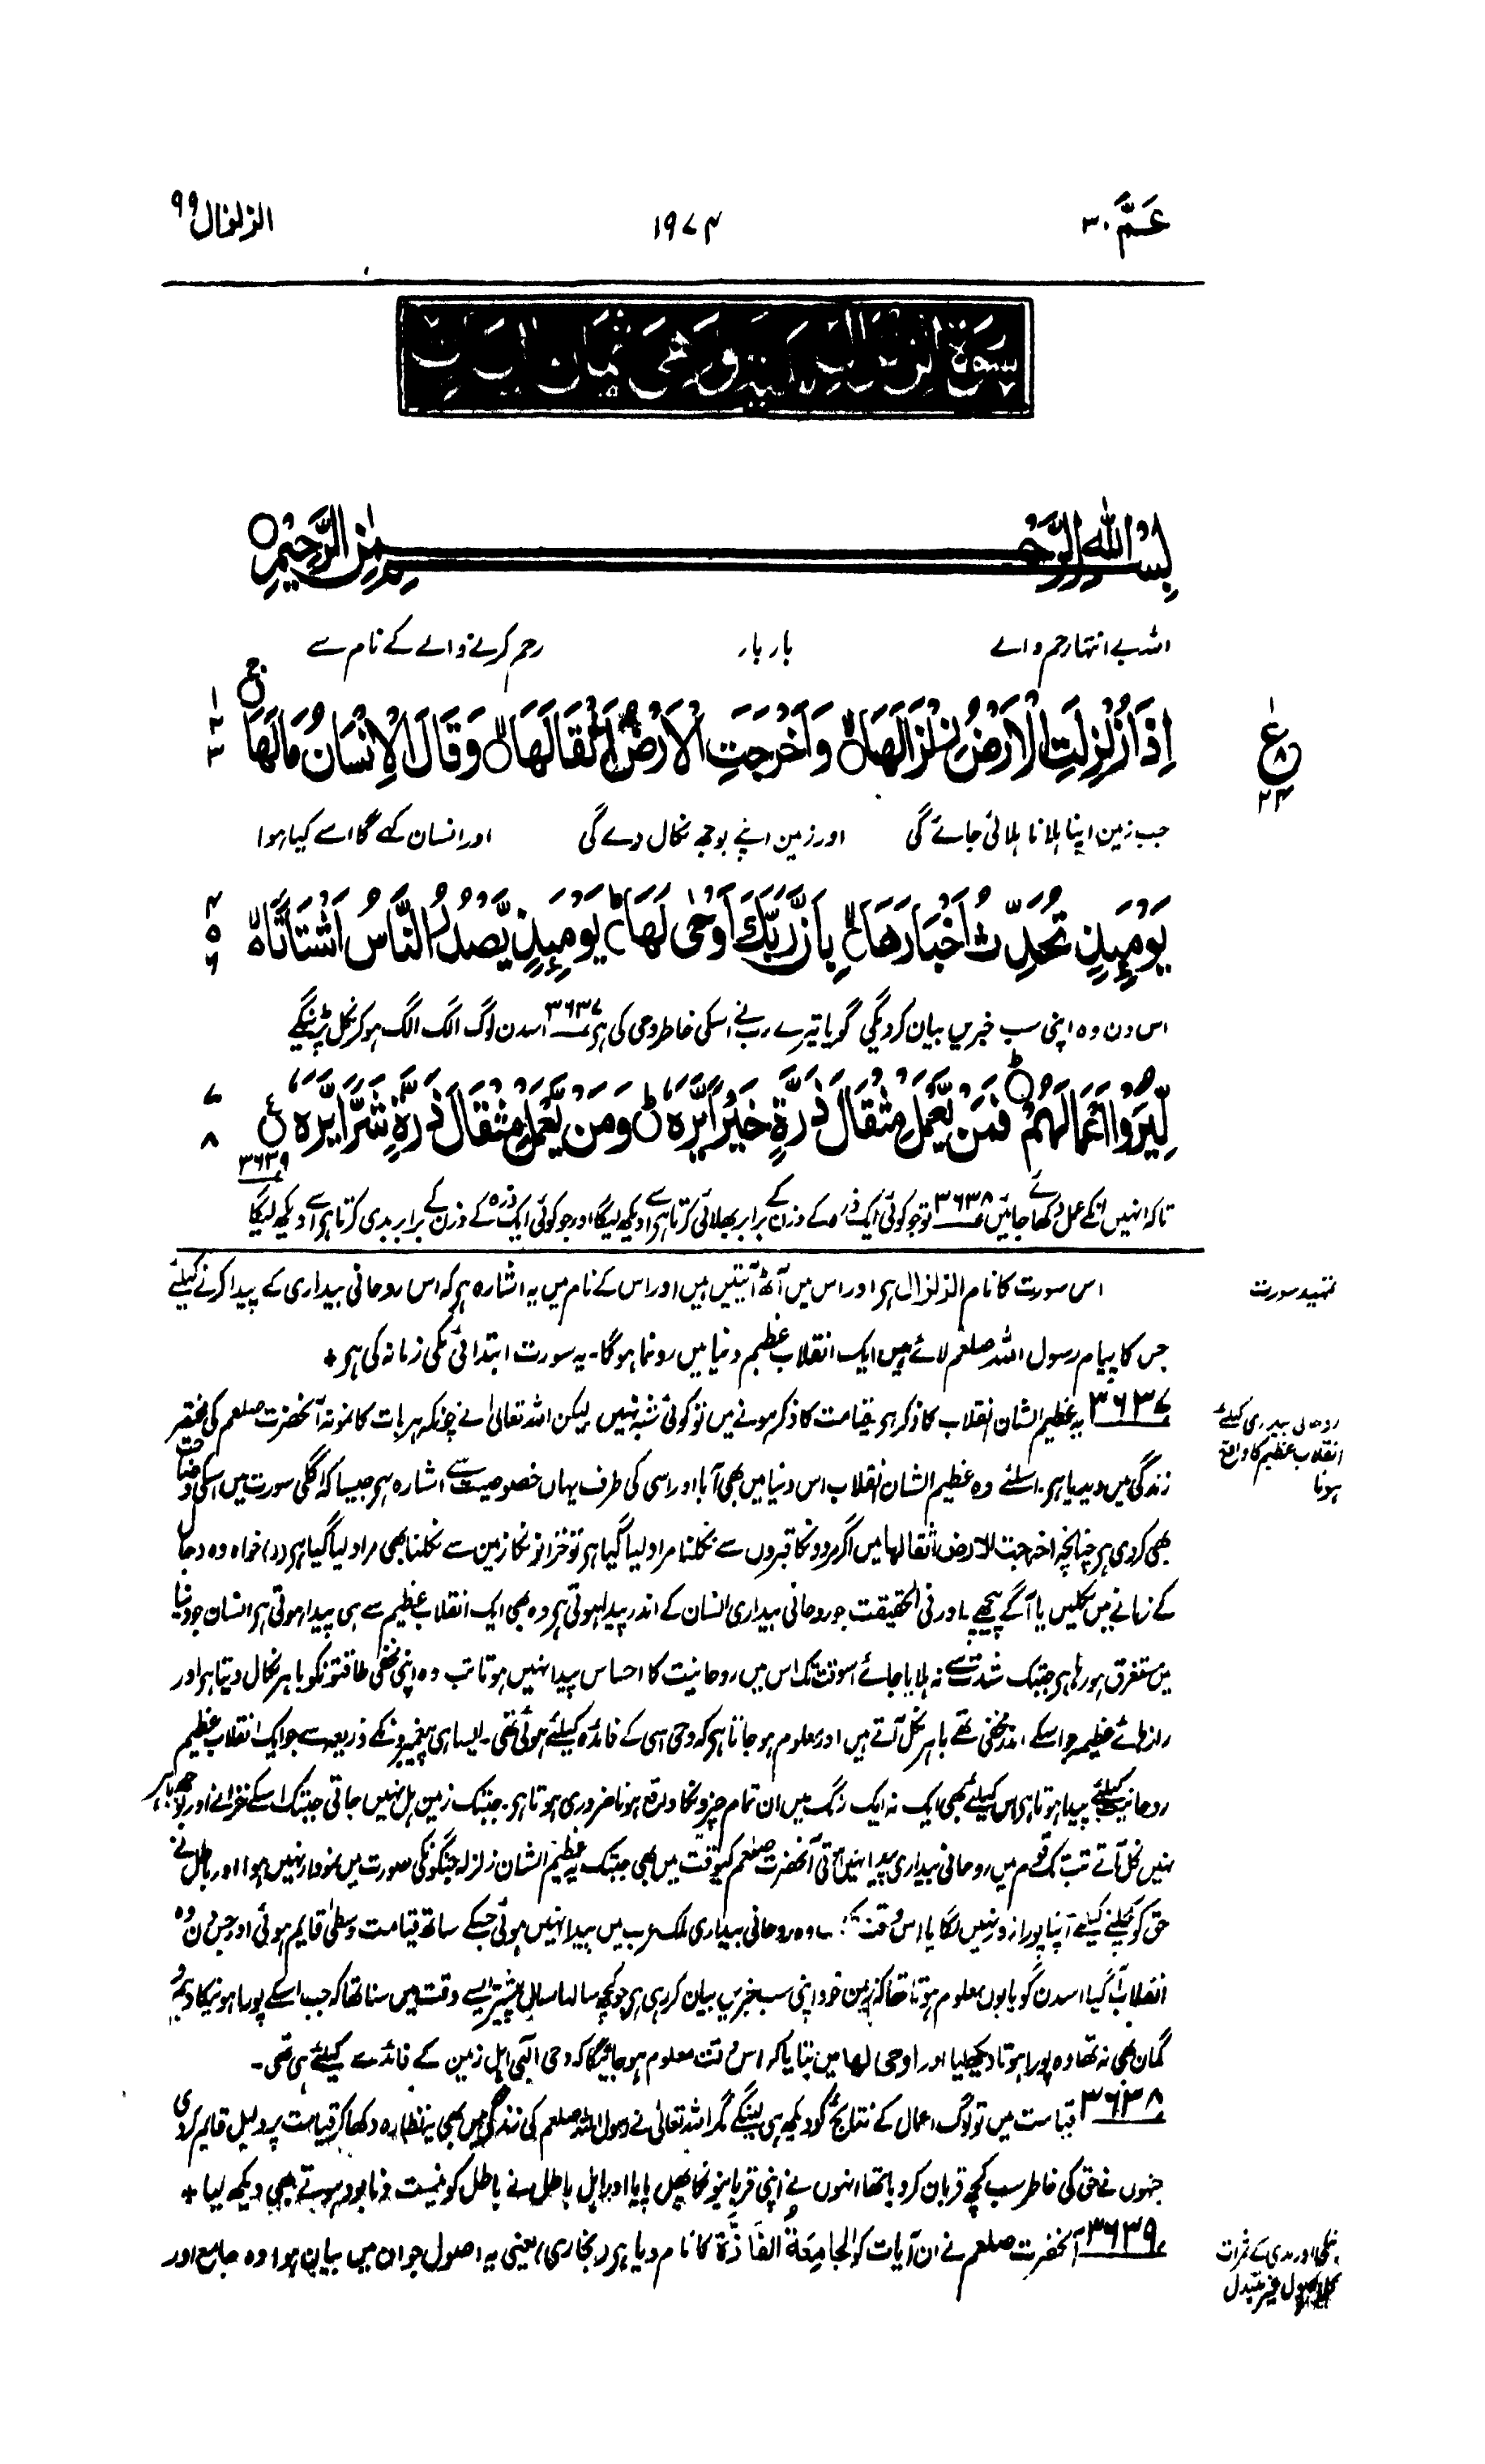 عَمَّ ۳۰
۱۹۷۴
الزلزال ۹۹
بِسْمِ اللّٰهِ الرَّحْمٰنِ الرَّحِيْمِ
اللہ بے انتہا رحم والے بار بار رحم کرنے والے کے نام سے
اِذَا زُلْزِلَتِ الْاَرْضُ زِلْزَالَهَا ۙ وَاَخْرَجَتِ الْاَرْضُ اَثْقَالَهَا ۙ وَقَالَ الْاِنْسَانُ مَا لَهَا ۚ
۱ ۲ ۳
جب زمین اپنا ہلانا ہلائی جائے گی اور زمین اپنے بوجھ نکال دے گی اور انسان کہے گا اسے کیا ہوا
يَوْمَئِذٍ تُحَدِّثُ اَخْبَارَهَا ۙ بِاَنَّ رَبَّكَ اَوْحٰى لَهَا ؕ يَوْمَئِذٍ يَّصْدُرُ النَّاسُ اَشْتَاتًا ۙ
۴ ۵ ۶
اس دن وہ اپنی سب خبریں بیان کردیگی گویا تیرے رب نے اسکی خاطر وحی کی ہے ۳۶۳۷ اسدن لوگ الگ الگ ہو کر نکل پڑینگے
لِّيُرَوْا اَعْمَالَهُمْ ؕ فَمَنْ يَّعْمَلْ مِثْقَالَ ذَرَّةٍ خَيْرًا يَّرَهٗ ؕ وَمَنْ يَّعْمَلْ مِثْقَالَ ذَرَّةٍ شَرًّا يَّرَهٗ
۷ ۸
۳۶۳۹
تاکہ انہیں انکے عمل دکھائے جائیں ۳۶۳۸ تو جو کوئی ایک ذرہ کے وزن کے برابر بھلائی کرتا ہے اسے دیکھ لیگا اور جو کوئی ایک ذرہ کے وزن کے برابر بدی کرتا ہے اسے دیکھ لیگا
تمہید سورت
اس سورت کا نام الزلزال ہے اور اس میں آٹھ آیتیں ہیں اور اس کے نام میں یہ اشارہ ہے کہ اس روحانی بیداری کے پیدا کرنے کیلئے
جس کا پیام رسول اللہ صلعم لائے ہیں ایک انقلاب عظیم دنیا میں رونما ہوگا۔ یہ سورت ابتدائی مکی زمانہ کی ہے +
روحانی بیداری کیلئے
انقلاب عظیم کا واقع
ہونا
۳۶۳۷ یہ عظیم الشان انقلاب کا ذکر ہے قیامت کا ذکر ہونے میں تو کوئی شبہ نہیں لیکن اللہ تعالیٰ نے چونکہ ہر بات کا نمونہ آنحضرت صلعم کی مختصر
زندگی میں دیدیا ہے۔ اسلئے وہ عظیم الشان انقلاب اس دنیا میں بھی آیا اور اسی کی طرف یہاں خصوصیت سے اشارہ ہے جیسا کہ اگلی سورت میں اسکی وضاحت
بھی کردی ہے چنانچہ اخرجت الارض اثقالها میں اگر مردونکا قبروں سے نکلنا مراد لیا گیا ہے تو خزانونکا زمین سے نکلنا بھی مراد لیا گیا ہے (ر) خواہ وہ دجال
کے زمانے میں نکلیں یا آگے پیچھے۔ اور فی الحقیقت جو روحانی بیداری انسان کے اندر پیدا ہوتی ہے وہ بھی ایک انقلاب عظیم سے ہی پیدا ہوتی ہے انسان جو دنیا
میں مستغرق ہو رہا ہے جبتک شدت سے نہ ہلایا جائے اسوقت تک اس میں روحانیت کا احساس پیدا نہیں ہوتا تب وہ اپنی مخفی طاقتونکو باہر نکال دیتا ہے اور
راز ہائے عظیم جو اسکے اندر مخفی تھے باہر نکل آتے ہیں اور معلوم ہو جاتا ہے کہ وحی اسی کے فائدہ کیلئے ہوئی تھی۔ ایسا ہی پیغمبرونکے ذریعہ سے جو ایک انقلاب عظیم
روحانیت کیلئے پیدا ہوتا ہے اس کیلئے بھی ایک نہ ایک رنگ میں ان تمام چیزونکا واقع ہونا ضروری ہوتا ہے۔ جبتک زمین ہل نہیں جاتی جبتک اسکے خزانے اور بوجھ باہر
نہیں نکل آتے تب تک قوم میں روحانی بیداری پیدا نہیں ہوتی آنحضرت صلعم کیوقت میں بھی جبتک یہ عظیم الشان زلزلہ جنگونکی صورت میں نمودار نہیں ہوا اور باطل نے
حق کو کچلنے کیلئے اپنا پورا زور نہیں لگایا اس وقت تک وہ روحانی بیداری ملک عرب میں پیدا نہیں ہوئی جسکے ساتھ قیامت وسطیٰ قایم ہوئی اور جس دن وہ
انقلاب آگیا اسدن گویا یوں معلوم ہوتا تھا کہ زمین خود اپنی سب خبریں بیان کر رہی ہے جو کچھ سالہا سال پیشتر ایسے وقت میں سنا تھا کہ جب اسکے پورا ہونیکا وہم و
گمان بھی نہ تھا وہ پورا ہوتا دیکھ لیا اور اوحی لها میں بتایا کہ اس وقت معلوم ہو جائیگا کہ وحی الٰہی اہل زمین کے فائدے کیلئے ہی تھی۔
۳۶۳۸ قیامت میں تو لوگ اعمال کے نتائج کو دیکھ ہی لینگے مگر اللہ تعالیٰ نے رسول اللہ صلعم کی زندگی میں بھی یہ نظارہ دکھا کر قیامت پر دلیل قایم کردی
جنہوں نے حق کی خاطر سب کچھ قربان کردیا تھا انہوں نے اپنی قربانیونکا پھل پایا اور اہل باطل نے باطل کو نیست و نابود ہوتے بھی دیکھ لیا +
نیکی اور بدی کے ثمرات
۳۶۳۹ آنحضرت صلعم نے ان آیات کو الجامِعَةُ الفَاذَّة کا نام دیا ہے (بخاری) یعنی یہ اصول جو ان میں بیان ہوا وہ جامع اور